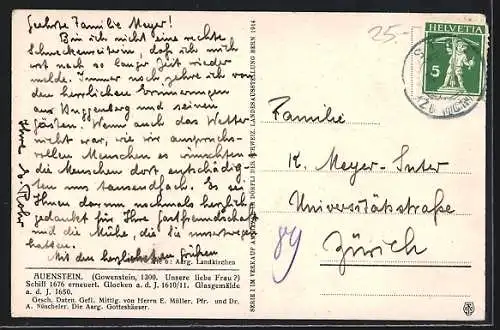 Geehrte Familie Meyer!
Bin ich nicht eine rechte
Schneckenreiterin, daß ich mich
erst nach so langer Zeit wieder
melde. Immer noch zehre ich von
den herrlichen Erinnerungen
aus Auggenberg und seinen
Gästen. Wenn auch das Wetter
nicht war, wie wir anspruchs-
vollen Menschen es wünschten
die Menschen dort entschädig-
ten uns tausendfach. Es sei
Ihnen darum nochmals herzlich
gedankt für Ihre Gastfreundschaft
und die Mühe, die Sie unsretwegen
hatten.
Mit den herzlichsten Grüßen
Ihre
aarg. Landkirchen
AUENSTEIN. (Gowenstein, 1300. Unsere liebe Frau?)
Schiff 1676 erneuert. Glocken a. d. J. 1610/11. Glasgemälde
a. d. J. 1650.
Gesch. Daten. Gefl. Mittlg. von Herrn E. Müller, Pfr. und Dr.
A. Nüscheler. Die Aarg. Gotteshäuser.
SERIE I IM VERKAUF DÖRFLI DER SCHWEIZ. LANDESAUSSTELLUNG BERN 1914
25.-
HELVETIA
5
Familie
K. Meyer-Suter
Universitätstraße
89
Zürich